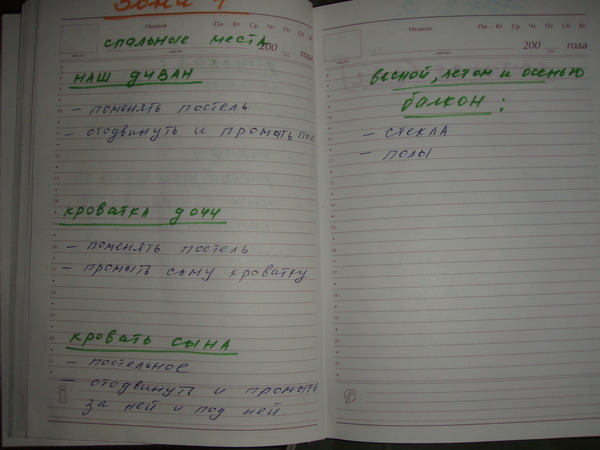 Зона 4
Неделя Пн Вт Ср Чт Пт Сб Вс
200 года
спальные места
наш диван
- поменять постель
- отодвинуть и промыть пол
кроватка дочи
- поменять постель
- промыть саму кроватку
кровать сына
- постельное
- отодвинуть и промыть
за ней и под ней.
Неделя Пн Вт Ср Чт Пт Сб Вс
200 года
весной, летом и осенью
балкон:
- стекла
- полы